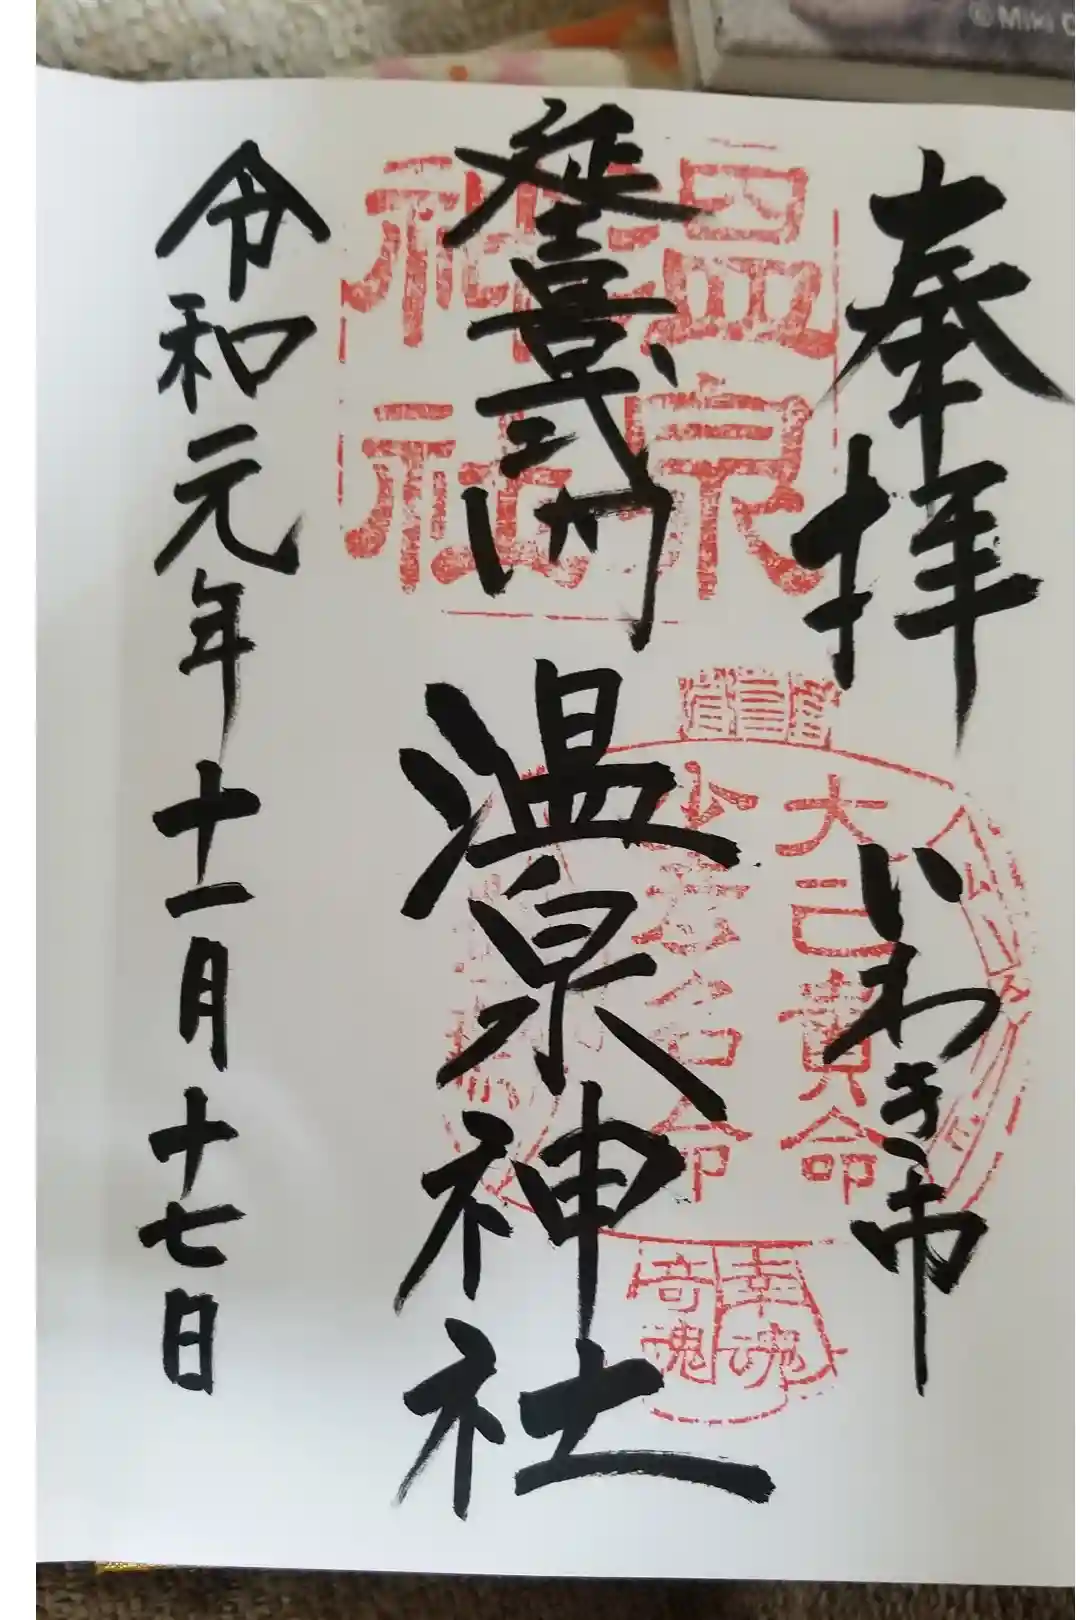 奉拝
いわき市
延喜式内
温泉神社
令和元年十一月十七日
温泉
神社
大己貴命
少彦名命
幸魂
奇魂
©Miki